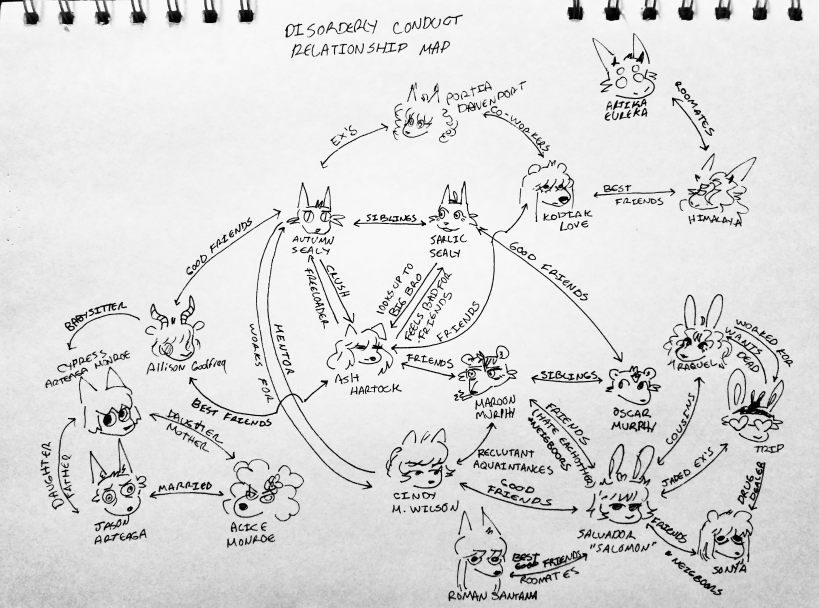 DISORDERLY CONDUCT
RELATIONSHIP MAP
PORTIA
DAVENPORT
EX'S
CO-WORKERS
ARTIKA
EUREKA
ROOMATES
KODIAK
LOVE
BEST
FRIENDS
HIMALAYA
AUTUMN
SEALY
SIBLINGS
SARLIC
SEALY
GOOD FRIENDS
GOOD FRIENDS
CRUSH
FREELOADER
LOOKS UP TO
BIG BRO
FEELS BAD FOR
FRIENDS
FRIENDS
WORKS FOR
MENTOR
BABYSITTER
CYPRESS
ARTEAGA MONROE
Allison Godfrey
ASH
HARTOCK
FRIENDS
MAROON
MURPHY
SIBLINGS
OSCAR
MURPHY
RAQUEL
WORKED FOR
WANTS
DEAD
TRIP
BEST FRIENDS
DAUGHTER
MOTHER
DAUGHTER
FATHER
JASON
ARTEAGA
MARRIED
ALICE
MONROE
CINDY
M. WILSON
RECLUTANT
AQUAINTANCES
FRIENDS
(HATE EACHOTHER)
*NEIGBOORS
COUSENS
JADED EX'S
DRUG
DEALER
GOOD
FRIENDS
SALVADOR
"SALOMON"
FRIENDS
& NEIGBOORS
SONYA
ROMAN SANTANA
BEST
FRIENDS
ROOMATES